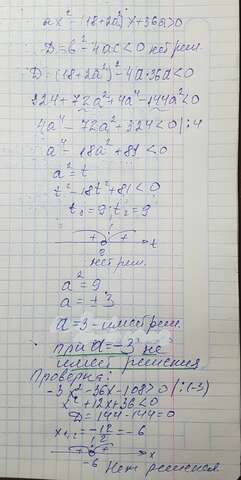 ax² - (18+2a²)x + 36a > 0
D = b² - 4ac < 0 нет реш.
D = (18+2a²)² - 4a·36a < 0
324 + 72a² + 4a⁴ - 144a² < 0
4a⁴ - 72a² + 324 < 0 | :4
a⁴ - 18a² + 81 < 0
a² = t
t² - 18t + 81 < 0
t₁ = 9; t₂ = 9
+ + t
9
нет реш.
a² = 9
a = ± 3
a = 3 - имеет реш.
при a = -3 не
имеет решения
Проверка:
-3x² - 36x - 108 > 0 | (:(-3)
x² + 12x + 36 < 0
D = 144 - 144 = 0
x₁,₂ = -12/12 = -6
+ + x
-6 Нет решения